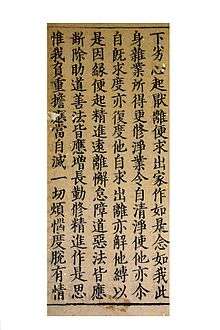 下劣心起厭離便求出家作如是念如我此
身雜業所得更修淨業令自清淨使他亦尒
自旣求度亦復度他自求出離亦解他縛以
是因緣便起精進遠離懈怠障道惡法皆應
斷除助道善法皆應增長勤修精進作是思
惟我負重擔應當自滅一切煩惱度脫有情